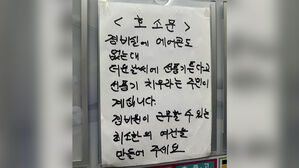 < 호소문 >
경비원에 에어콘도
없는대
더운날씨에 선풍기튼다고
선풍기 치우라는 주민이
계십니다.
경비원이 근무할 수 있는
최소한의 여건을
만들어 주세요